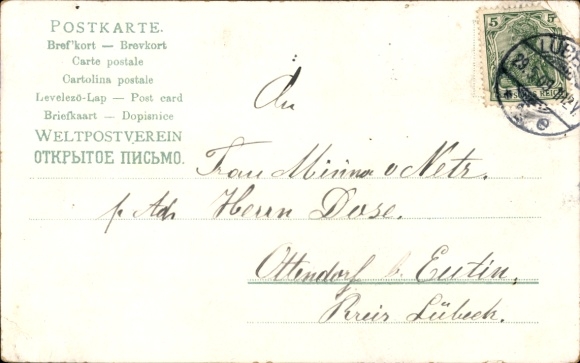 POSTKARTE.
Bref'kort — Brevkort
Carte postale
Cartolina postale
Levelező-Lap — Post card
Briefkaart — Dopisnice
WELTPOSTVEREIN
ОТКРЫТОЕ ПИСЬМО.
5 5
REICH
LÜBE
29.
An
Frau Minna v Netz.
p. Adr Herrn Dose.
Ottendorf b. Eutin,
Kreis Lübeck.